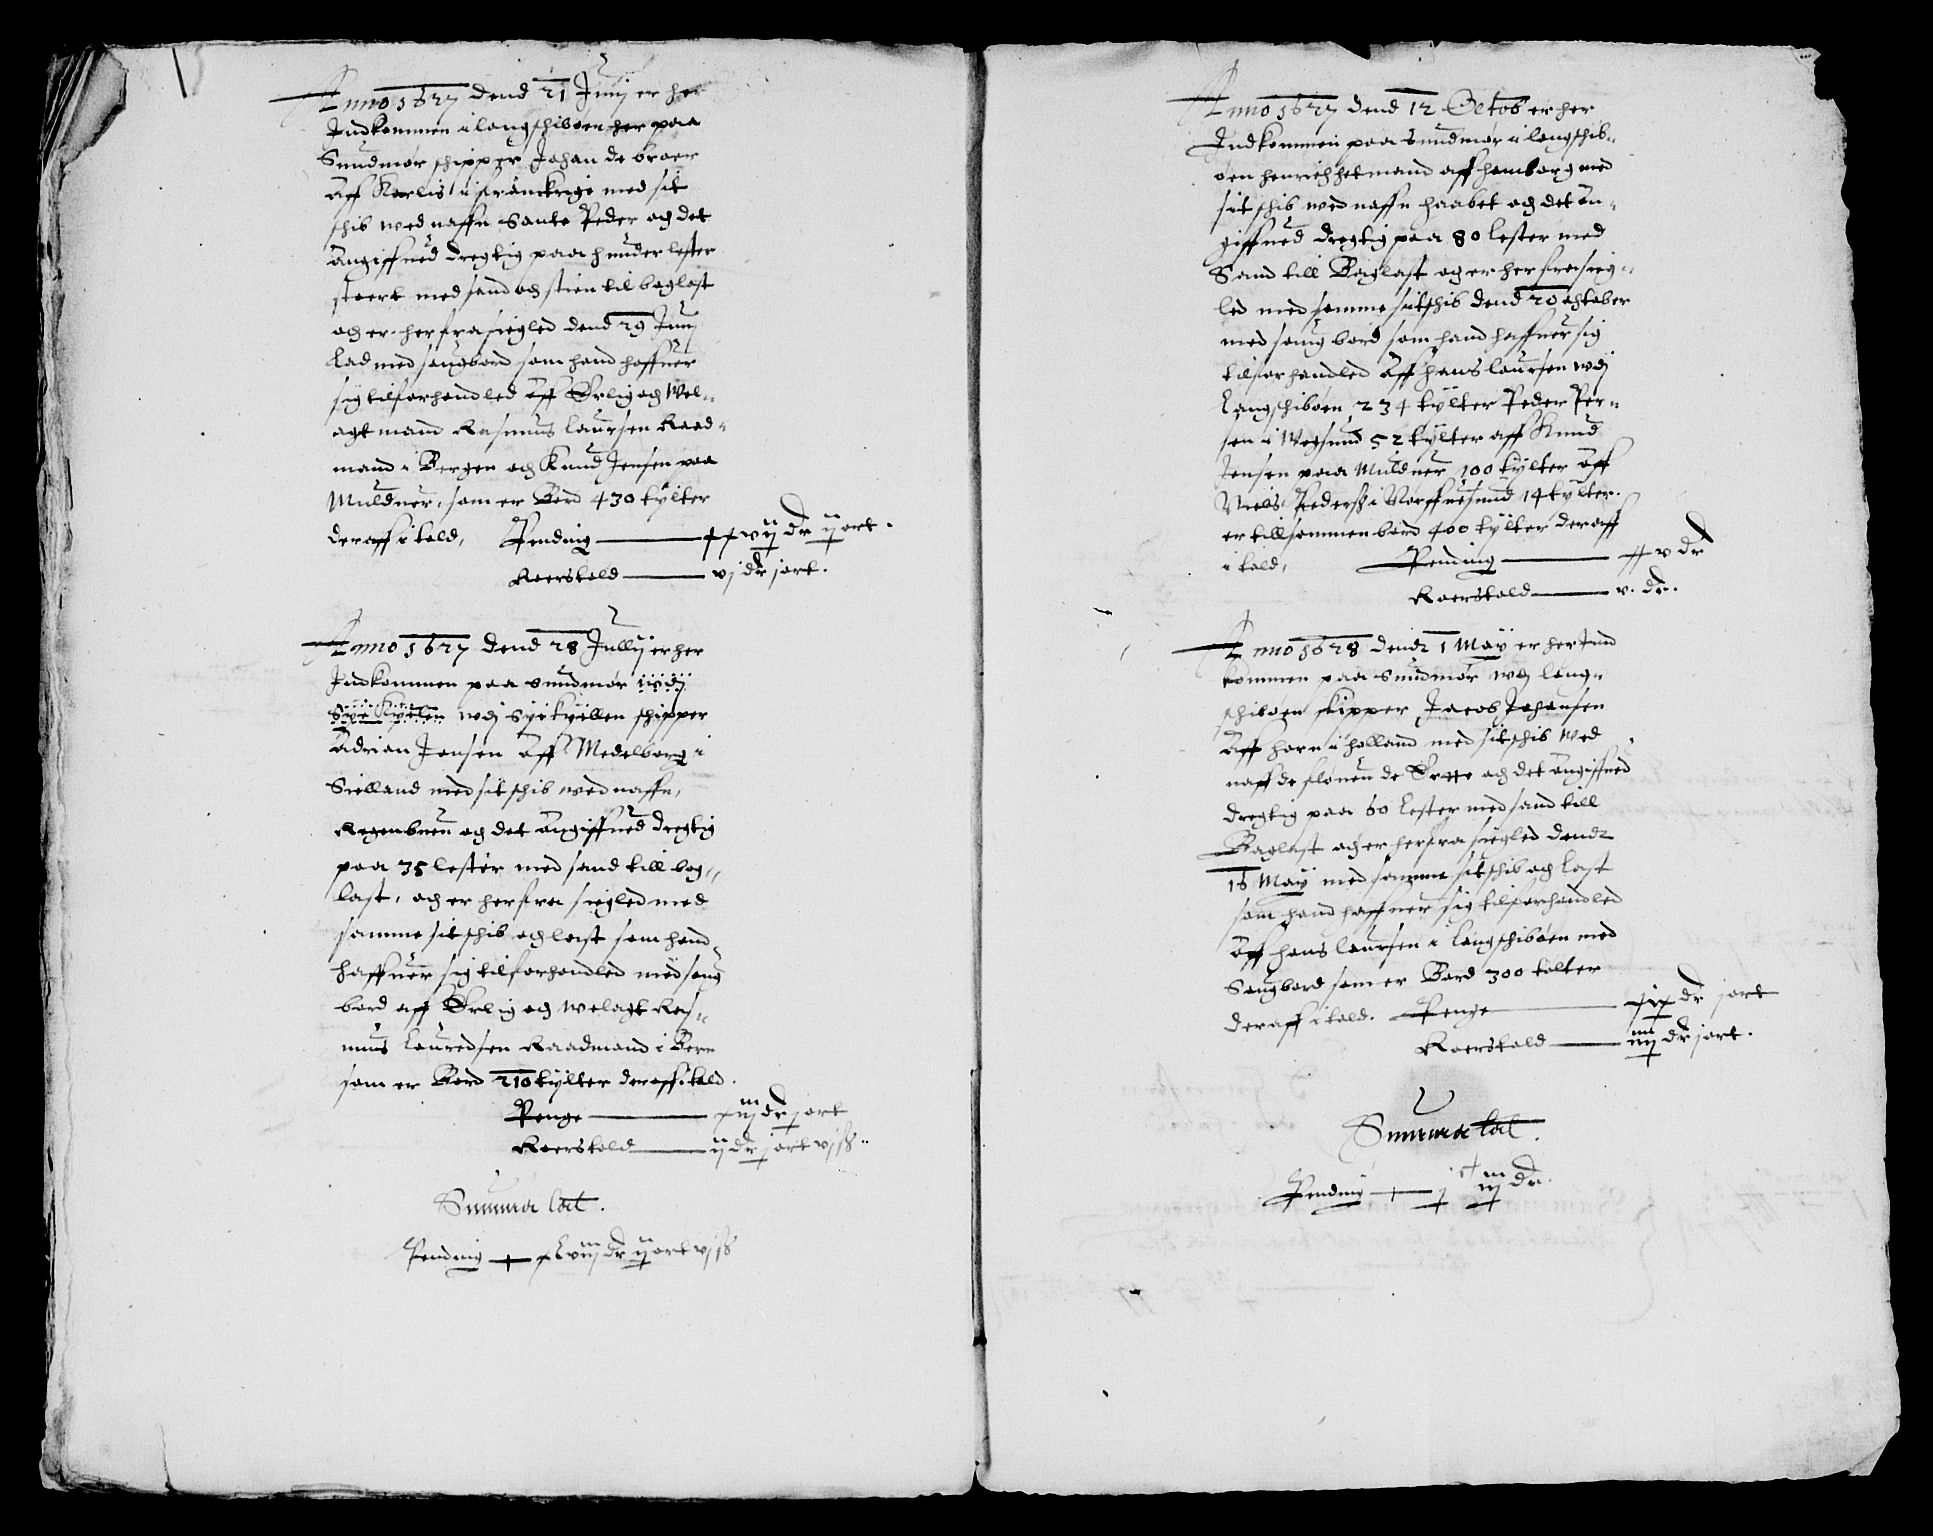 Anno 1627 dend 21 Junij er her
Indkommen i langschiboen her paa
Sundmør schipper Johan de broer
Aff Karlis i franckrige med sit
schib wed naffn Sante Peder och det
Angiffued dregtig paa hunder lester
stoert med sand och stien til baglast
och er her fra siegled dend 29 Junij
lad med saugbord som hand haffuer
sig tilforhandled Aff Erlig och Wel-
agt mand Rasmus laursen Raad-
mand i Bergen och Knud Jensen paa
Muldner, som er Bord 430 tylter
deraff i told, Pending xxvij dr ij ort.
Koerstold vj dr j ort.
Anno 1627 dend 28 Jullij er her
Indkommen paa Sundmør wdj
Syekyelen wdj Syekyillen schipper
Adrian Jensen Aff Medelborg i
Sielland med sit schib wed naffn,
Regenbuen och det Angiffued dregtig
paa 35 lester med sand till bag-
last, och er her fra siegled med
samme sit schib och last som hand
haffuer sig tilforhandled med saug
bord aff Erlig och welagt Ras-
mus Lauredsen Raadmand i Bern
som er Bord 210 tylter deraff i told.
Penge xiij dr j ort
Koerstold ij dr j ort vj ß
Summa lat.
Pending xlviij dr ij ort vj ß
Anno 1627 dend 12 Octob er her
Indkommen paa Sundmør i langschib-
oen henrich hetmand aff hamborg med
sit schib wed naffn haabet och det An-
giffued dregtig paa 80 lester med
Sand till Baglast och er her fra sieg-
led med samme sit schib dend 20 october
med saug bord som hand haffuer sig
tilforhandled Aff hans laursen wdj
Langschiboen 234 tylter Peder Per-
sen i Wegsund 52 tylter aff Knud
Jensen paa Muldner 100 tylter Aff
Niels Pederß i Vorffuesund 14 tylter.
er tillsammen bord 400 tylter deraff
i told, Pending xxv dr
Koerstold v. dr.
Anno 1628 dend 1 May er her Ind
kommen paa Sundmør wdj lang-
schiboen skipper Jacob Johansen
Aff horn i holland med sit schib wed
naff de slønen de Ortte och det angiffued
dregtig paa 60 Lester med sand till
Baglast och er her fra siegled dend
16 May med samme sit schib och last
som hand haffuer sig tilforhandled
Aff hans laursen i langschiboen med
Saugbord som er Bord 300 tolter
deraff i told. Penge xix dr j ort
Koerstold iiij dr j ort.
Summa lat.
Pending j c iij dr.